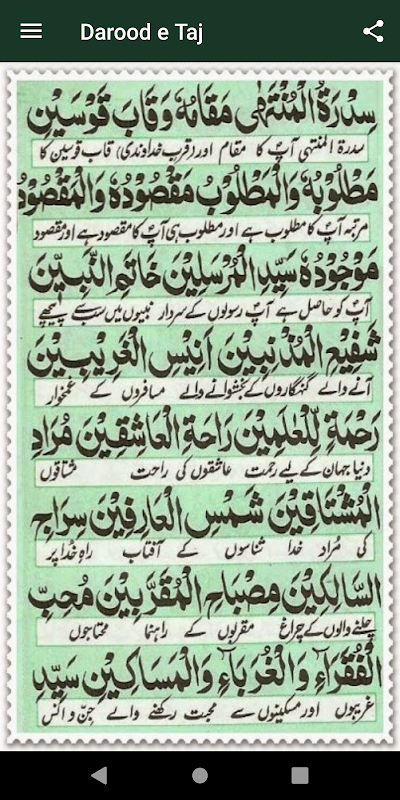 Darood e Taj
سِدْرَةُ الْمُنْتَهٰى مَقَامُهٗ وَقَابَ قَوْسَيْنِ
سدرۃ المنتہی آپؐ کا مقام اور (قرب خداوندی) قاب قوسین کا
مَطْلُوْبُهٗ وَالْمَطْلُوْبُ مَقْصُوْدُهٗ وَالْمَقْصُوْدُ
مرتبہ آپؐ کا مطلوب ہے اور مطلوب ہی آپؐ کا مقصود ہے اور مقصود
مَوْجُوْدُهٗ سَيِّدِ الْمُرْسَلِيْنَ خَاتَمِ النَّبِيّٖنَ
آپؐ کو حاصل ہے آپؐ رسولوں کے سردار نبیوں میں سب سے پیچھے
شَفِيْعِ الْمُذْنِبِيْنَ اَنِيْسِ الْغَرِيْبِيْنَ
آنے والے گنہگاروں کے بخشوانے والے مسافروں کے غمخوار
رَحْمَةٍ لِّلْعٰلَمِيْنَ رَاحَةِ الْعَاشِقِيْنَ مُرَادِ
دنیا جہان کے لیے رحمت عاشقوں کی راحت مشتاقوں
الْمُشْتَاقِيْنَ شَمْسِ الْعَارِفِيْنَ سِرَاجِ
کی مُراد خدا شناسوں کے آفتاب راہِ خدا پر
السَّالِكِيْنَ مِصْبَاحِ الْمُقَرَّبِيْنَ مُحِبِّ
چلنے والوں کے چراغ مقربوں کے راہنما محتاجوں
الْفُقَرَآءِ وَالْغُرَبَآءِ وَالْمَسَاكِيْنِ سَيِّدِ
غریبوں اور مسکینوں سے محبت رکھنے والے جنّ و انس